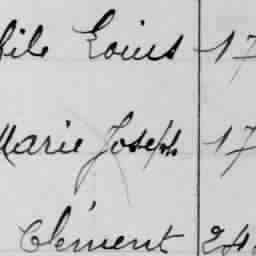 file Louis 17
Marie Joseph 17
Clément 24